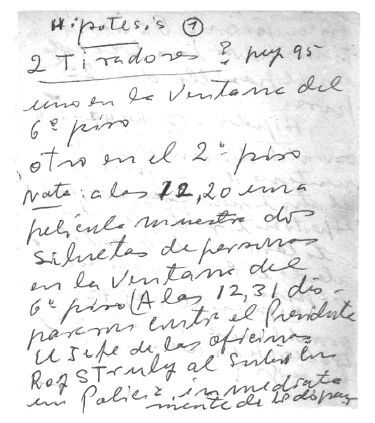 Hipotesis 1
2 Tiradores ? pag 95
uno en la Ventana del
6º piso
otro en el 2º piso
Nota: a las 12,20 una
película muestra dos
siluetas de personas
en la Ventana del
6º piso (A las 12,31 dis-
pararon contra el Presidente
El Jefe de las oficinas
Roy S Truly al subir con
un Policia inmediata
mente de los disparos